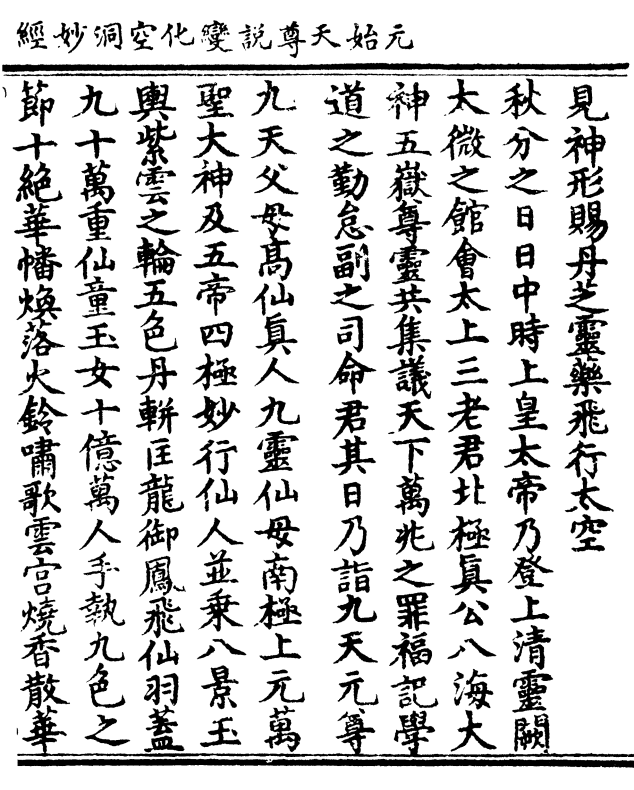 元始天尊說變化空洞妙經
見神形賜丹芝靈藥飛行太空
秋分之日日中時上皇太帝乃登上清靈闕
太微之館會太上三老君北極眞公八海大
神五嶽尊靈共集議天下萬兆之罪福記學
道之勤怠副之司命君其日乃詣九天元尊
九天父母高仙眞人九靈仙母南極上元萬
聖大神及五帝四極妙行仙人並乘八景玉
輿紫雲之輪五色丹軿匡龍御鳳飛仙羽蓋
九十萬重仙童玉女十億萬人手執九色之
節十絕華幡煥落火鈴嘯歌雲宮燒香散華